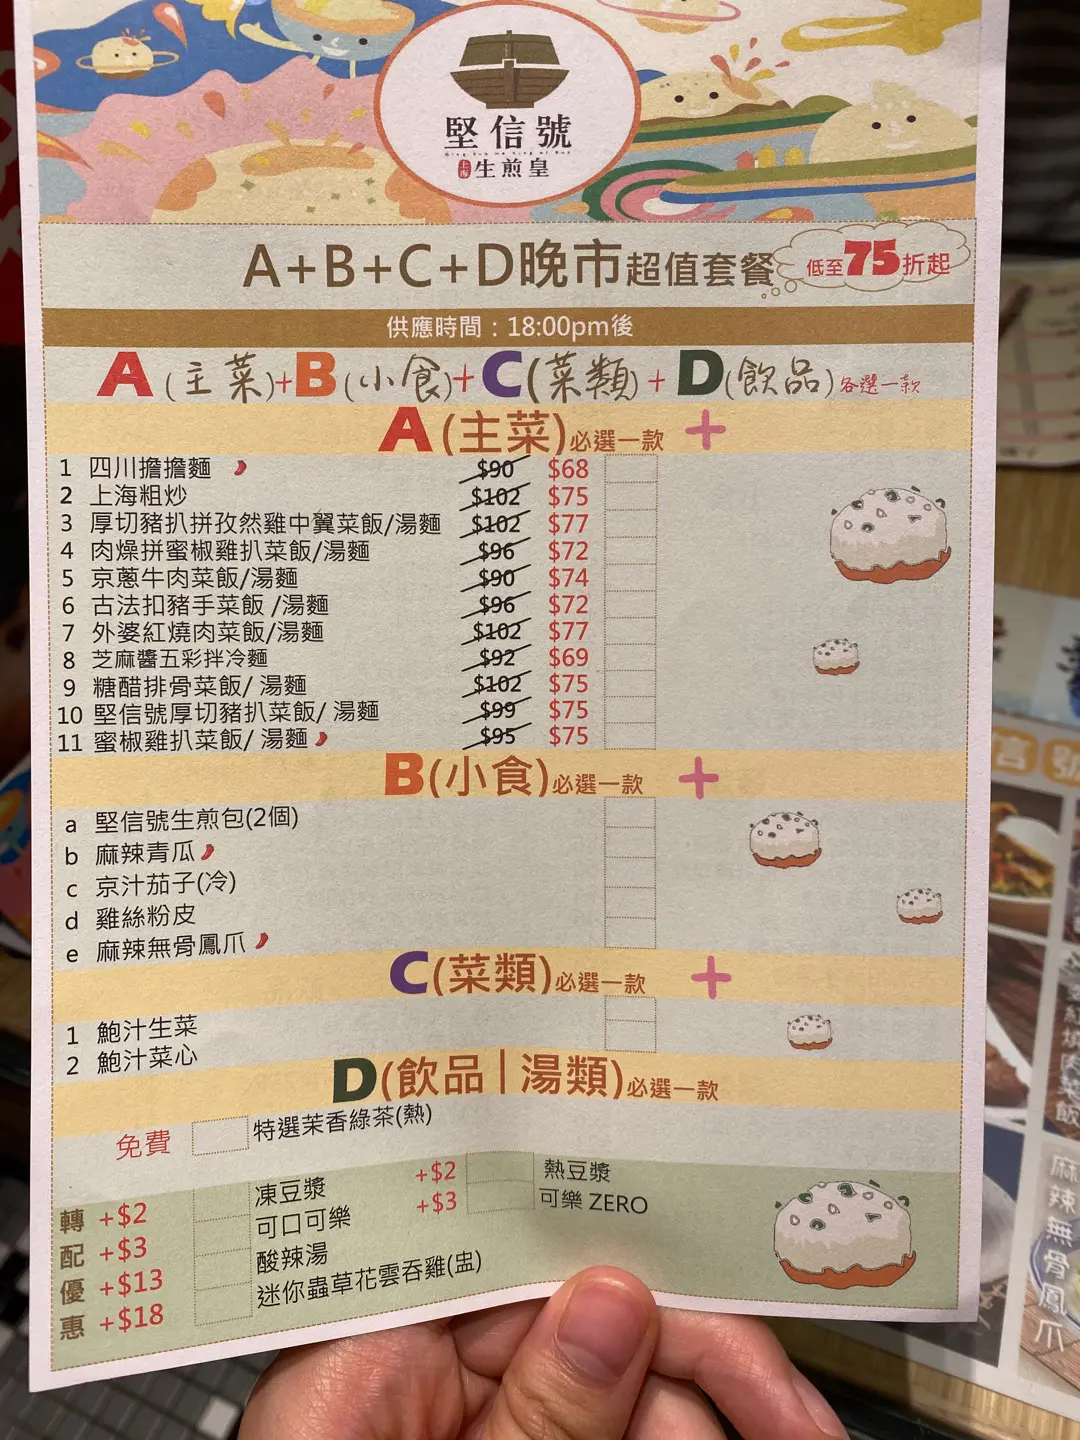 堅信號
上海 生煎皇
A+B+C+D晚市超值套餐 低至75折起
供應時間：18:00pm後
A(主菜)+B(小食)+C(菜類)+D(飲品)各選一款
A(主菜)必選一款 +
1 四川擔擔麵 $90 $68
2 上海粗炒 $102 $75
3 厚切豬扒拼孜然雞中翼菜飯/湯麵 $102 $77
4 肉燥拼蜜椒雞扒菜飯/湯麵 $96 $72
5 京蔥牛肉菜飯/湯麵 $90 $74
6 古法扣豬手菜飯 /湯麵 $96 $72
7 外婆紅燒肉菜飯/湯麵 $102 $77
8 芝麻醬五彩拌冷麵 $92 $69
9 糖醋排骨菜飯/ 湯麵 $102 $75
10 堅信號厚切豬扒菜飯/ 湯麵 $99 $75
11 蜜椒雞扒菜飯/ 湯麵 $95 $75
B(小食)必選一款 +
a 堅信號生煎包(2個)
b 麻辣青瓜
c 京汁茄子(冷)
d 雞絲粉皮
e 麻辣無骨鳳爪
C(菜類)必選一款 +
1 鮑汁生菜
2 鮑汁菜心
D(飲品|湯類)必選一款
免費 特選茉香綠茶(熱)
轉配優惠
+$2 凍豆漿 +$2 熱豆漿
+$3 可口可樂 +$3 可樂 ZERO
+$13 酸辣湯
+$18 迷你蟲草花雲吞雞(盅)
信號
紅燒肉菜飯
麻辣無骨鳳爪